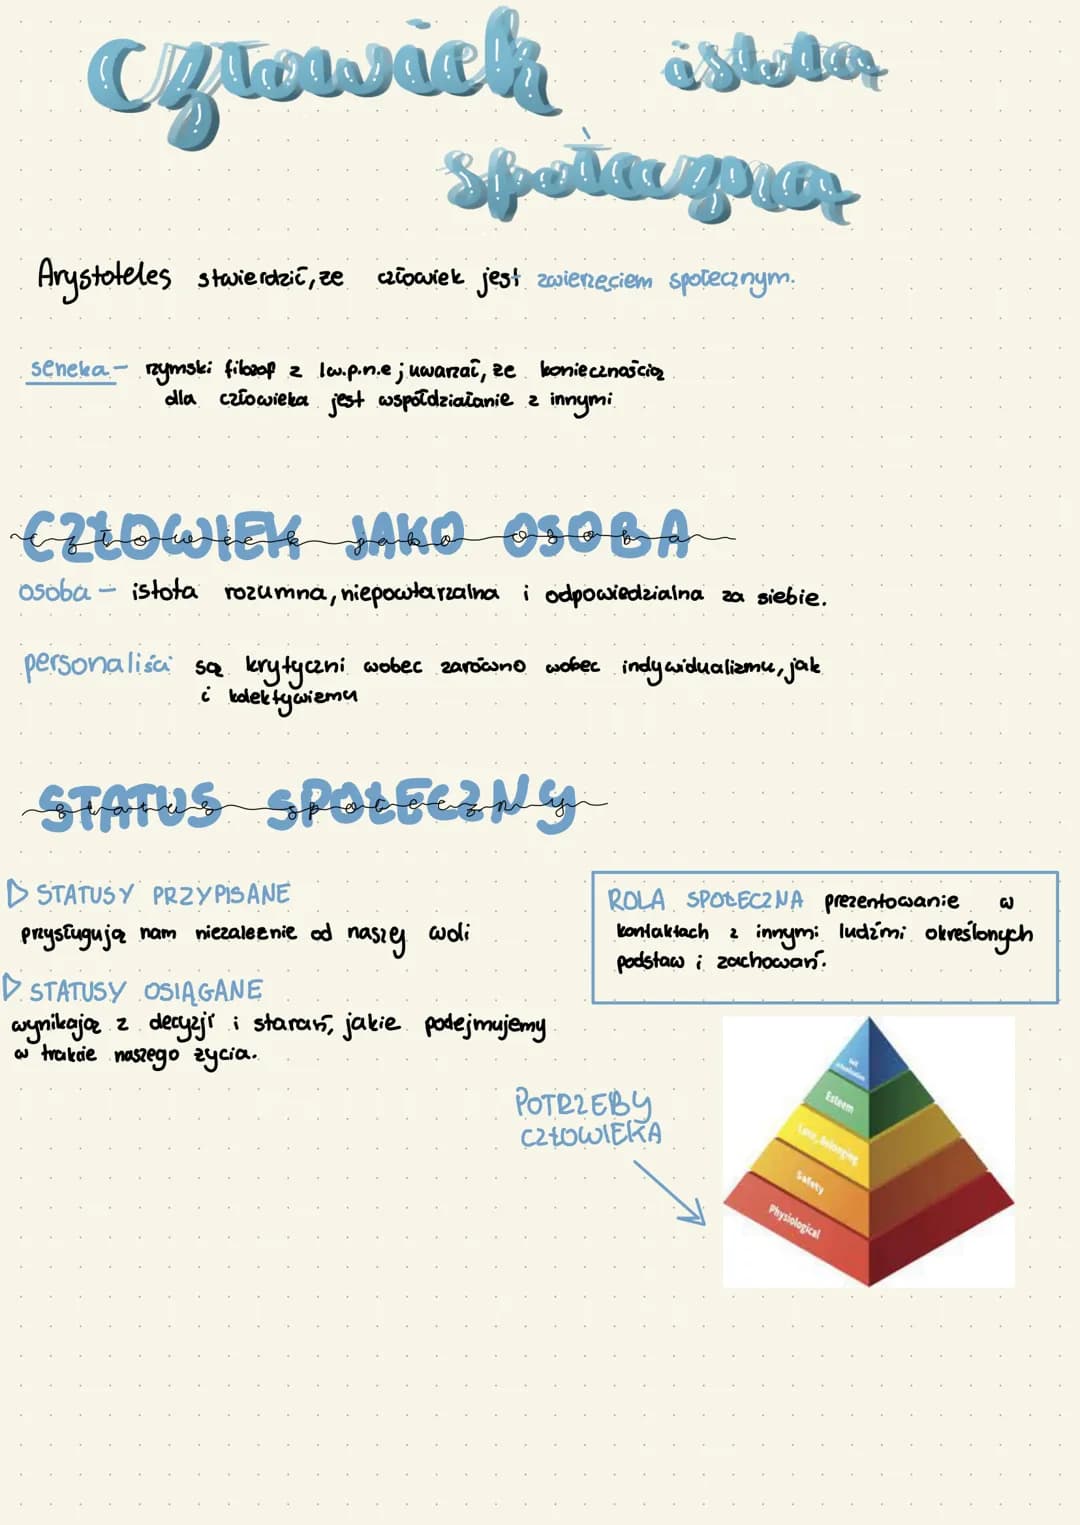 Człowiek istota
społeczna
Arystoteles stwierdził, że człowiek jest zwierzęciem społecznym.
seneka - rzymski filozof z I w.p.n.e ; uważał, że koniecznością
dla człowieka jest współdziałanie z innymi
CZŁOWIEK JAKO OSOBA
człowiek jako osoba
osoba - istota rozumna, niepowtarzalna i odpowiedzialna za siebie.
personaliści są krytyczni wobec zarówno wobec indywidualizmu, jak
i kolektywizmu
STATUS SPOŁECZNY
status społeczny
▷ STATUSY PRZYPISANE
przysługują nam niezależnie od naszej woli
▷ STATUSY OSIĄGANE
wynikają z decyzji i starań, jakie podejmujemy
w trakcie naszego życia.
ROLA SPOŁECZNA prezentowanie w
kontaktach z innymi ludźmi określonych
podstaw i zachowań.
POTRZEBY
CZŁOWIEKA
Self
actualization
Esteem
Love, belonging
Safety
Physiological